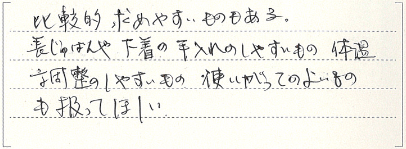 比較的 求めやすいものもある。
長じゅばんや下着の手入れのしやすいもの 体温
調整のしやすいもの 使いがってのよいもの
も扱ってほしい